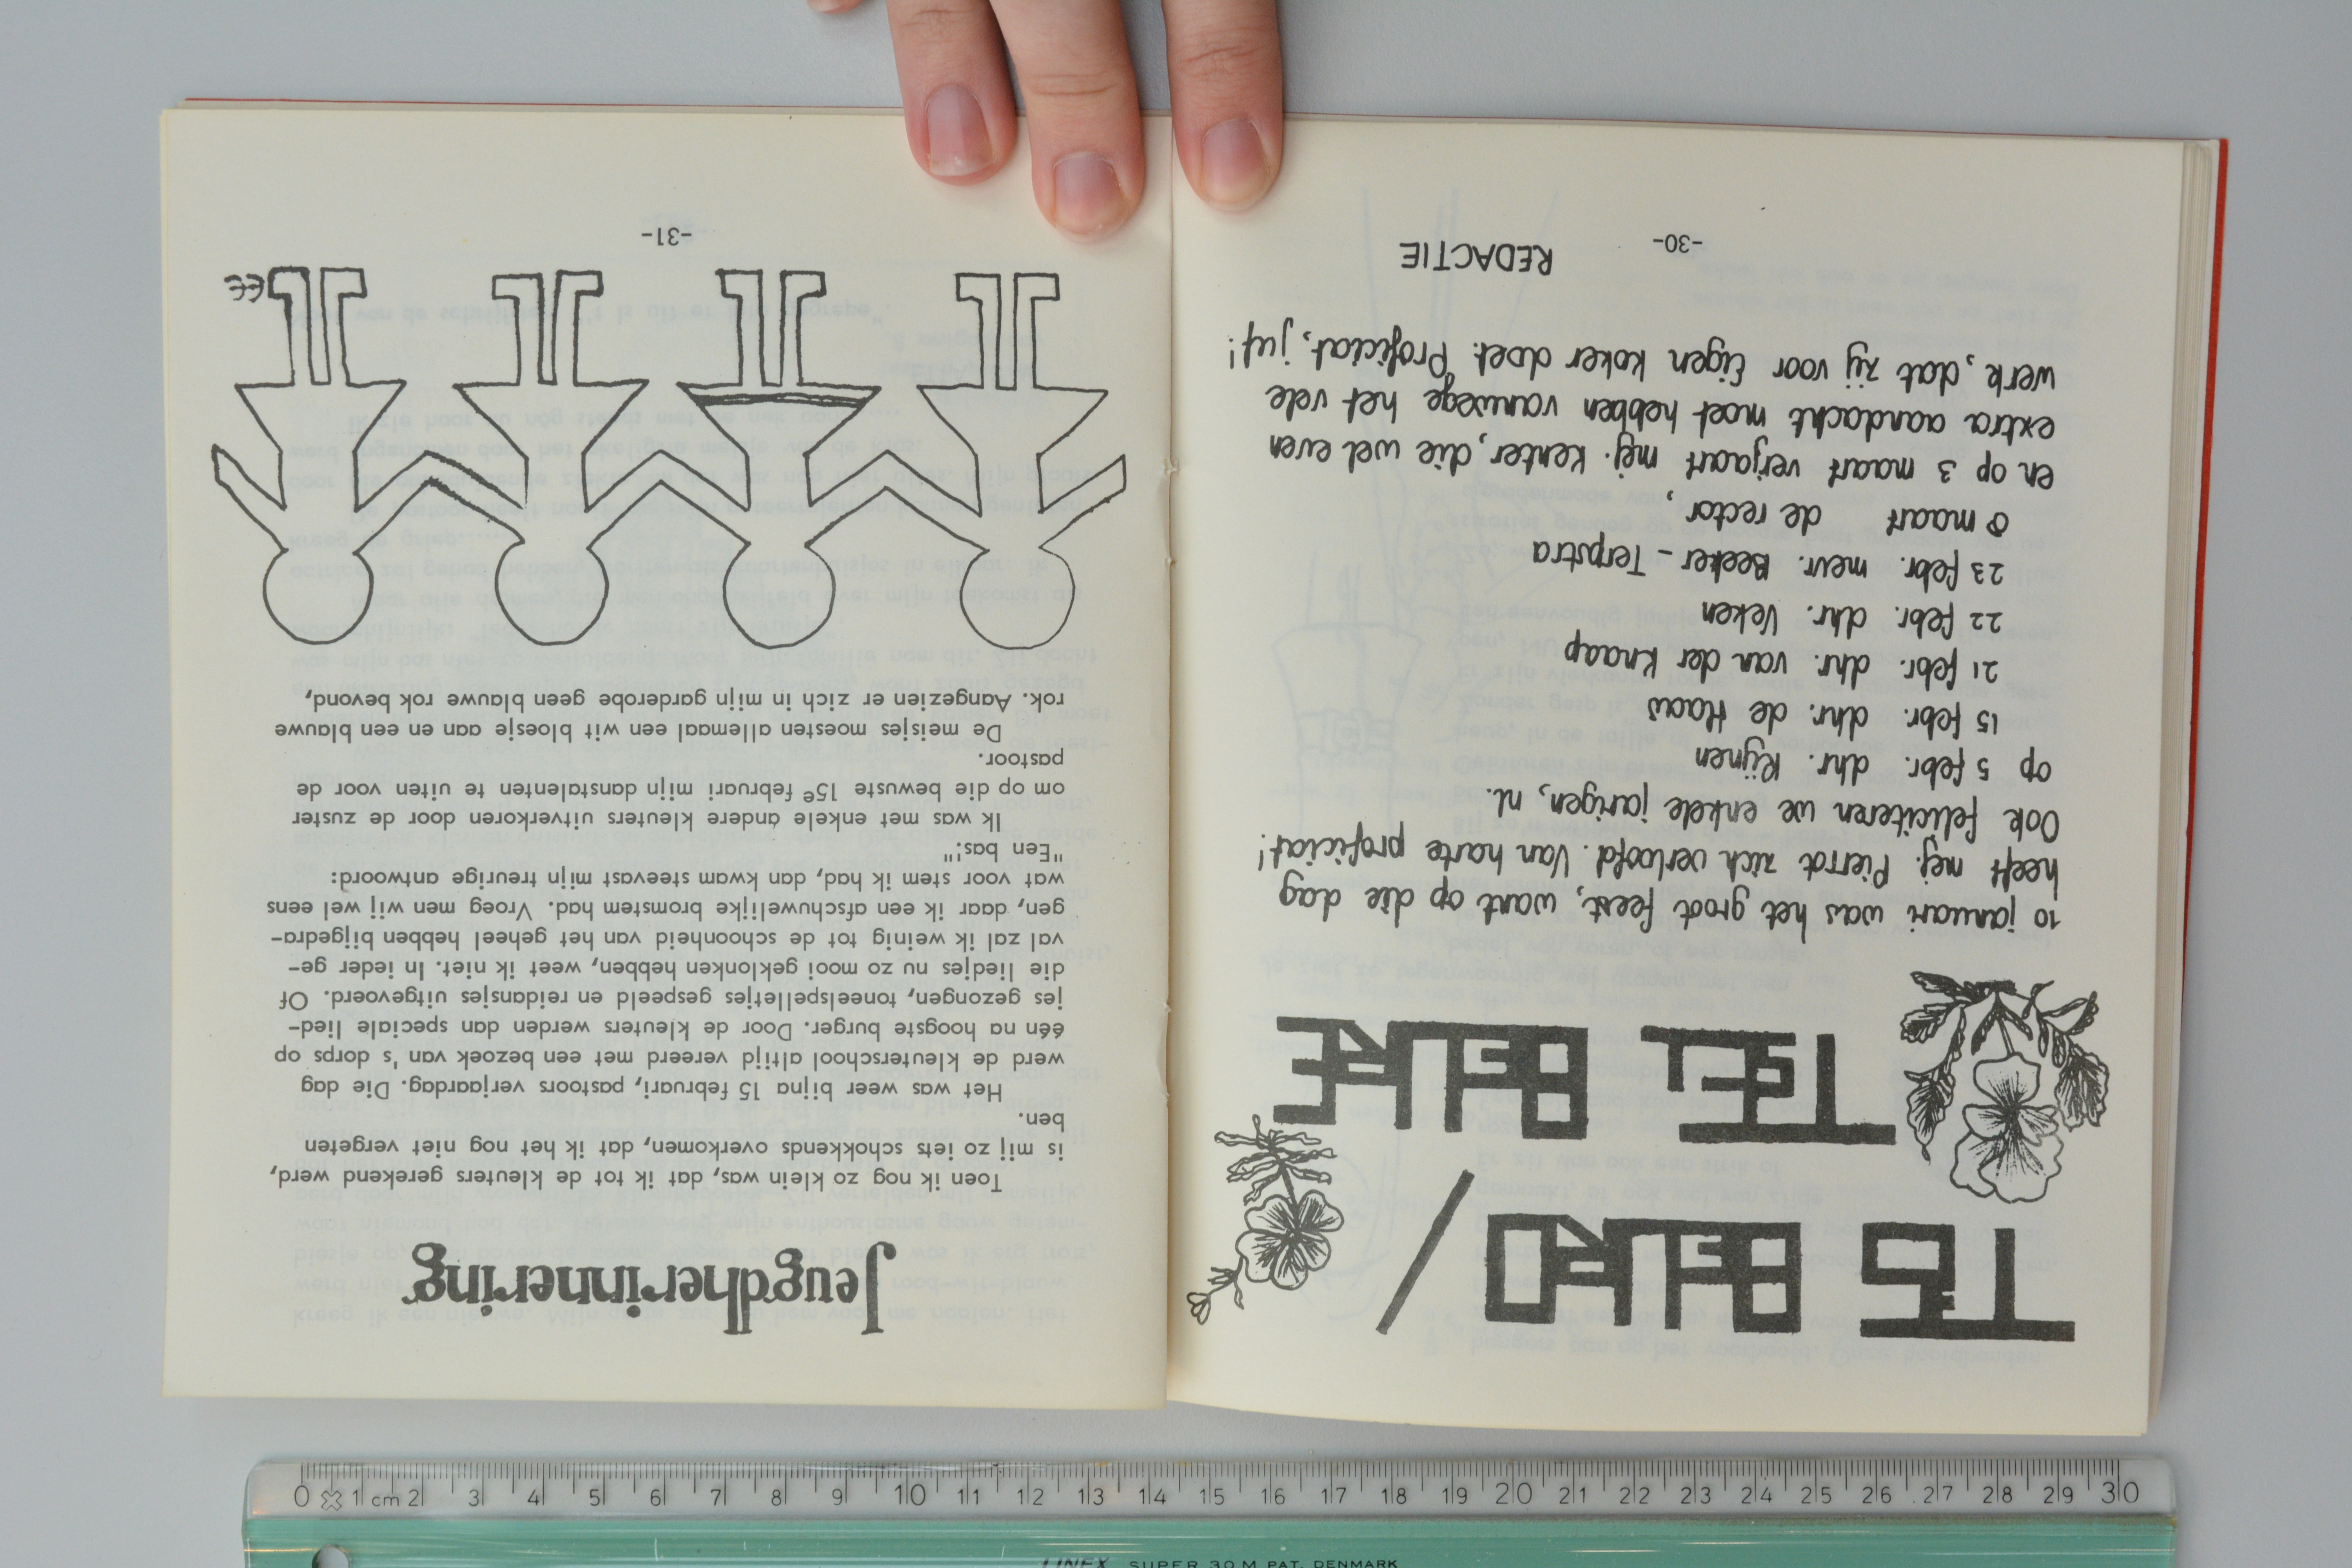 T IS BEURD /
T SEL BEURE
10 januari was het groot feest, want op die dag
heeft mej. Pierrot zich verloofd. Van harte proficiat!
Ook feliciteren we enkele jarigen, nl.
op 5 febr. dhr. Rijnen
15 febr. dhr. de Haas
21 febr. dhr. van der Knaap
22 febr. dhr. Veken
23 febr. mevr. Beeker - Terpstra
8 maart de rector,
en op 3 maart verjaart mej. Kenter, die wel even
extra aandacht moet hebben vanwege het vele
werk, dat zij voor Eigen Koker doet. Proficiat, juf!
REDACTIE
-30-
Jeugdherinnering
Toen ik nog zo klein was, dat ik tot de kleuters gerekend werd,
is mij zo iets schokkends overkomen, dat ik het nog niet vergeten
ben.
Het was weer bijna 15 februari, pastoors verjaardag. Die dag
werd de kleuterschool altijd vereerd met een bezoek van 's dorps op
één na hoogste burger. Door de kleuters werden dan speciale lied-
jes gezongen, toneelspelletjes gespeeld en reidansjes uitgevoerd. Of
die liedjes nu zo mooi geklonken hebben, weet ik niet. In ieder ge-
val zal ik weinig tot de schoonheid van het geheel hebben bijgedra-
gen, daar ik een afschuwelijke bromstem had. Vroeg men wij wel eens
wat voor stem ik had, dan kwam steevast mijn treurige antwoord:
"Een bas!"
Ik was met enkele andere kleuters uitverkoren door de zuster
om op die bewuste 15e februari mijn danstalenten te uiten voor de
pastoor.
De meisjes moesten allemaal een wit bloesje aan en een blauwe
rok. Aangezien er zich in mijn garderobe geen blauwe rok bevond,
-31-
0 1 cm 2 3 4 5 6 7 8 9 10 11 12 13 14 15 16 17 18 19 20 21 22 23 24 25 26 27 28 29 30
LINEX SUPER 30 M PAT. DENMARK